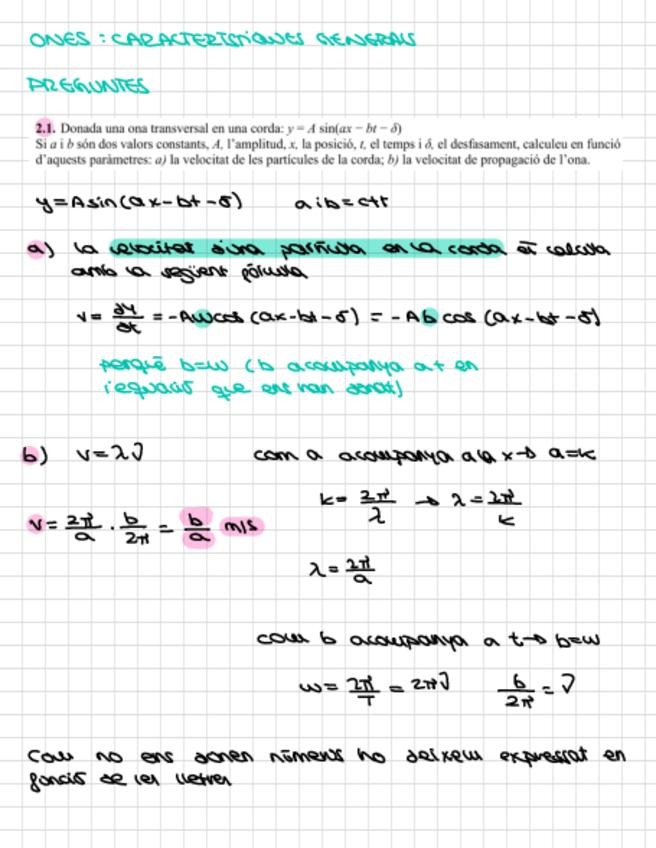 ONES : CARACTERÍSTIQUES GENERALS
PREGUNTES
2.1. Donada una ona transversal en una corda: y = A sin(ax − bt − δ)
Si a i b són dos valors constants, A, l'amplitud, x, la posició, t, el temps i δ, el desfasament, calculeu en funció
d'aquests paràmetres: a) la velocitat de les partícules de la corda; b) la velocitat de propagació de l'ona.
y=Asin(ax-bt-δ) a i b=ctt
a) la velocitat d'una partícula en la corda es calcula
amb la següent fórmula
v= ∂y/∂t = -Aωcos (ax-bt-δ) = -Ab cos (ax-bt-δ)
perquè b=ω (b acompanya a t en
l'equació que ens han donat)
b) v=λν com a acompanya a la x→ a=k
k= 2π/λ → λ= 2π/k
v= 2π/a · b/2π = b/a m/s
λ= 2π/a
com b acompanya a t→ b=ω
ω= 2π/T = 2πν b/2π = ν
Com no ens donen números ho deixem expressat en
funció de les lletres